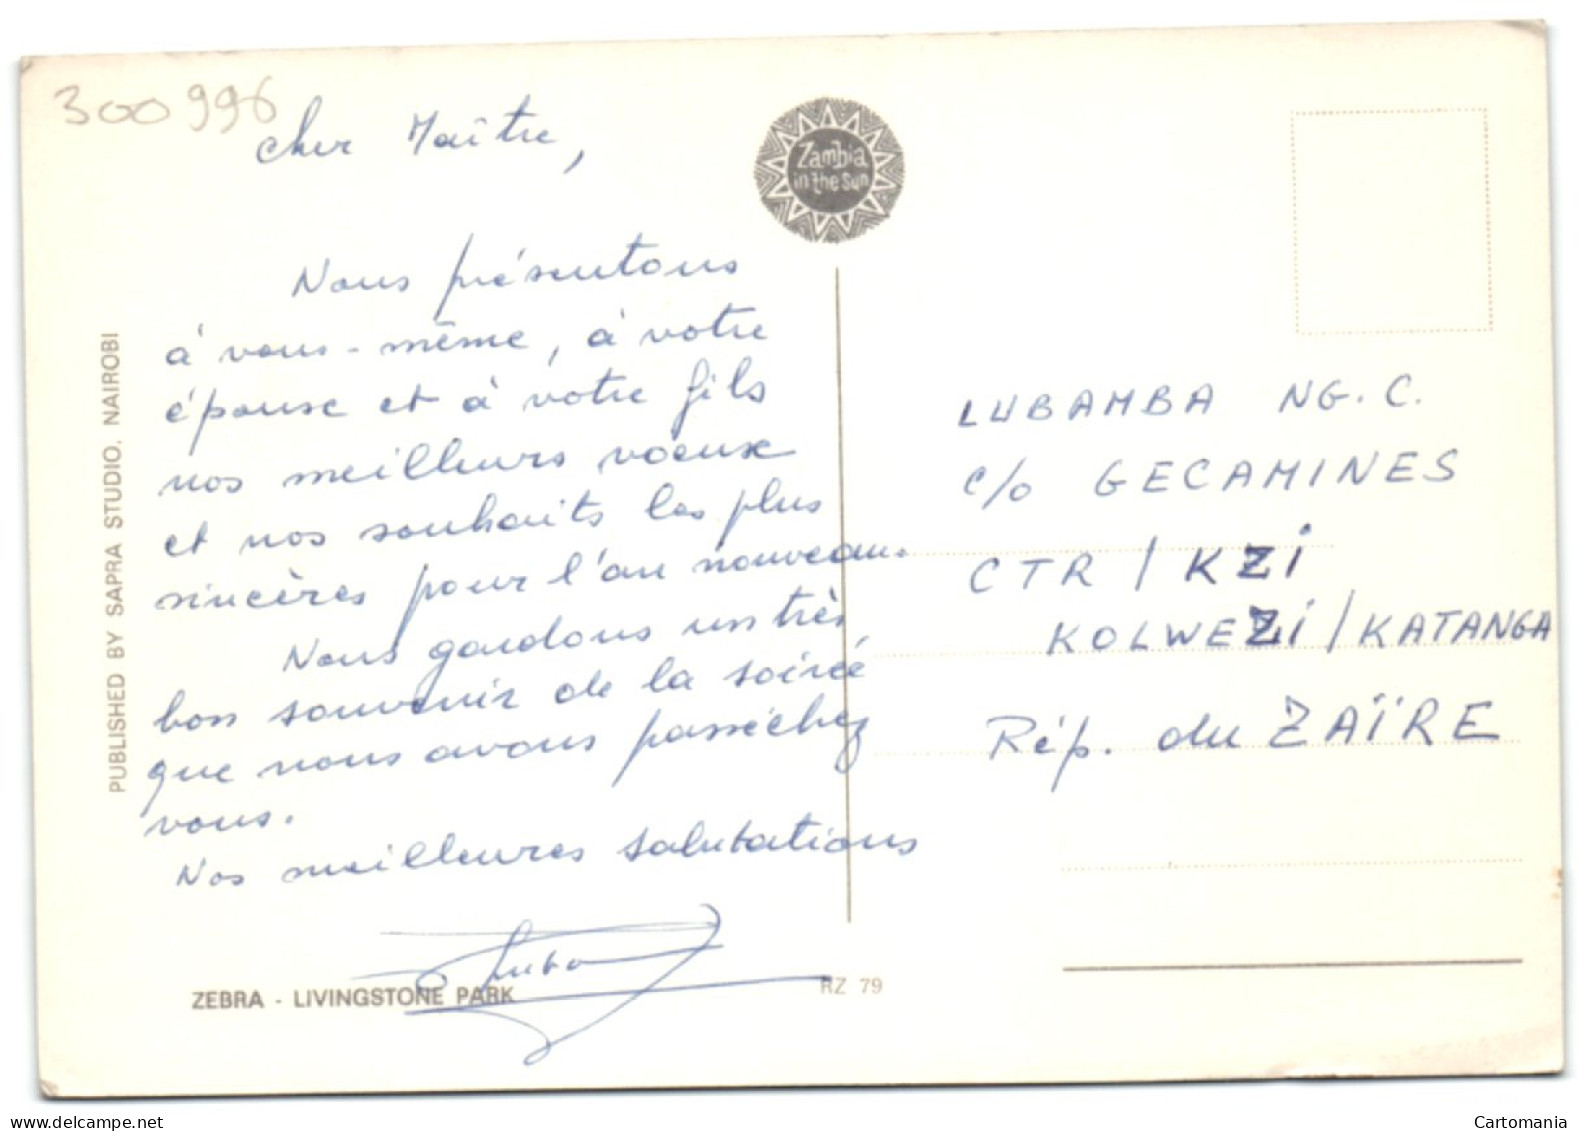 300996
Cher Maître,
Zambia
in the Sun
Nous présentons
à vous-même, à votre
épouse et à votre fils
nos meilleurs voeux
et nos souhaits les plus
sincères pour l'an nouveau.
Nous gardons un très
bon souvenir de la soirée
que nous avons passée chez
vous.
Nos meilleures salutations
PUBLISHED BY SAPRA STUDIO. NAIROBI
ZEBRA - LIVINGSTONE PARK
RZ 79
LUBAMBA NG. C.
c/o GECAMINES
CTR / KZI
KOLWEZI / KATANGA
Rép. du ZAÏRE
www.delcampe.net
Cartomania